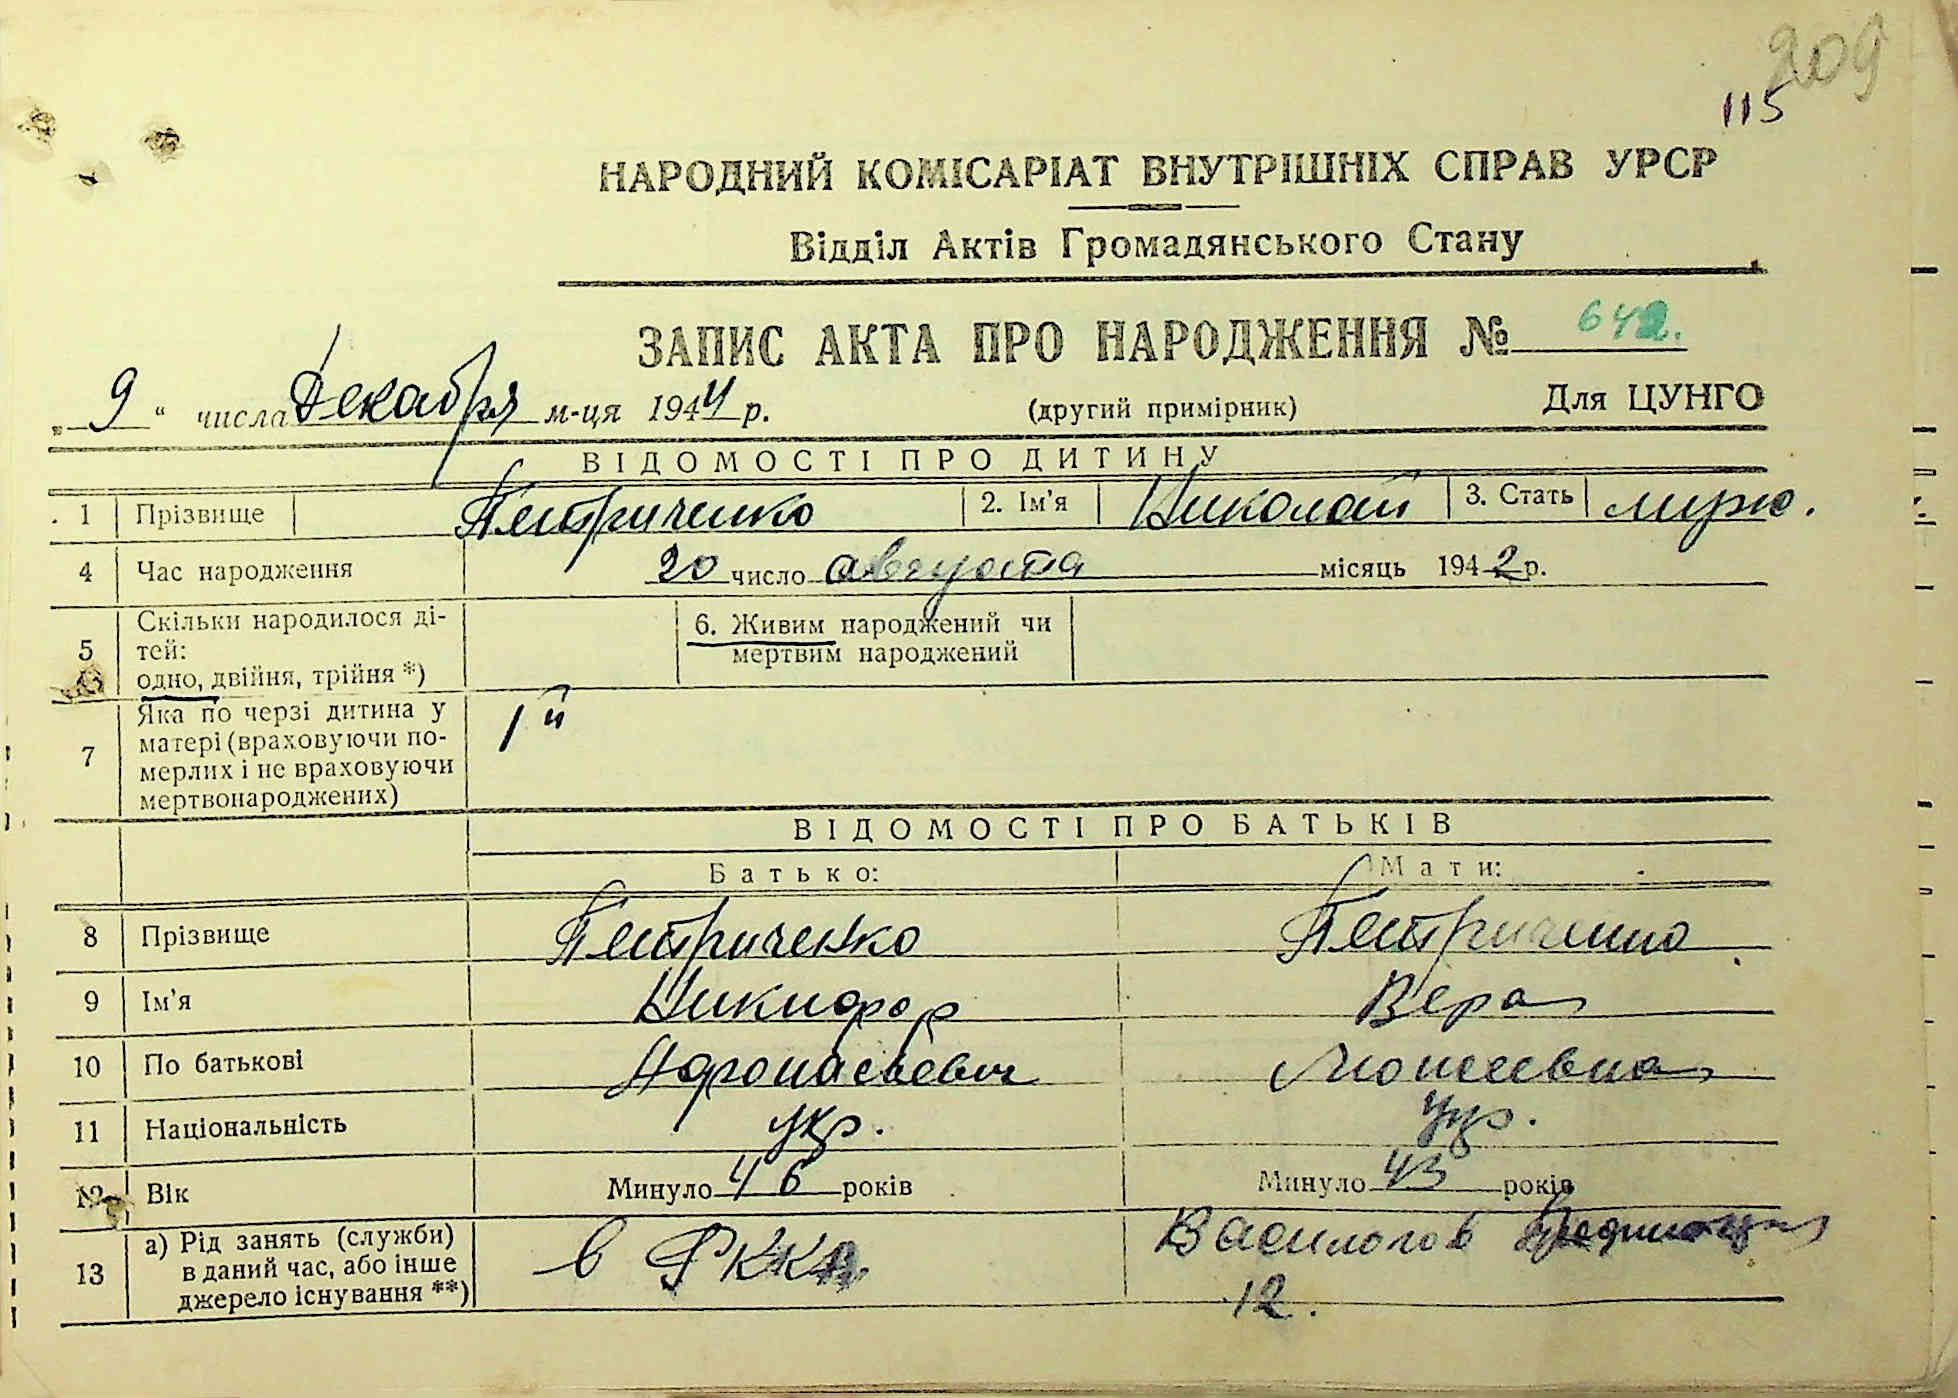 209
115
НАРОДНИЙ КОМІСАРІАТ ВНУТРІШНІХ СПРАВ УРСР
Відділ Актів Громадянського Стану
ЗАПИС АКТА ПРО НАРОДЖЕННЯ № 642.
„ 9 “ числа Декабря м-ця 1944 р. (другий примірник) Для ЦУНГО
ВІДОМОСТІ ПРО ДИТИНУ
1 Прізвище Пестриченко 2. Ім’я Николай 3. Стать муж.
4 Час народження 20 число августа місяць 1942 р.
5 Скільки народилося ді-
тей:
одно, двійня, трійня *)
6. Живим народжений чи
мертвим народжений
7 Яка по черзі дитина у
матері (враховуючи по-
мерлих і не враховуючи
мертвонароджених)
1й
ВІДОМОСТІ ПРО БАТЬКІВ
Батько: Мати:
8 Прізвище Пестриченко Пестриченко
9 Ім’я Никифор Вера
10 По батькові Афонасьевич Моисеевна
11 Національність укр. укр.
12 Вік Минуло 46 років Минуло 43 років
13 а) Рід занять (служби)
в даний час, або інше
джерело існування **)
в РККА
12.